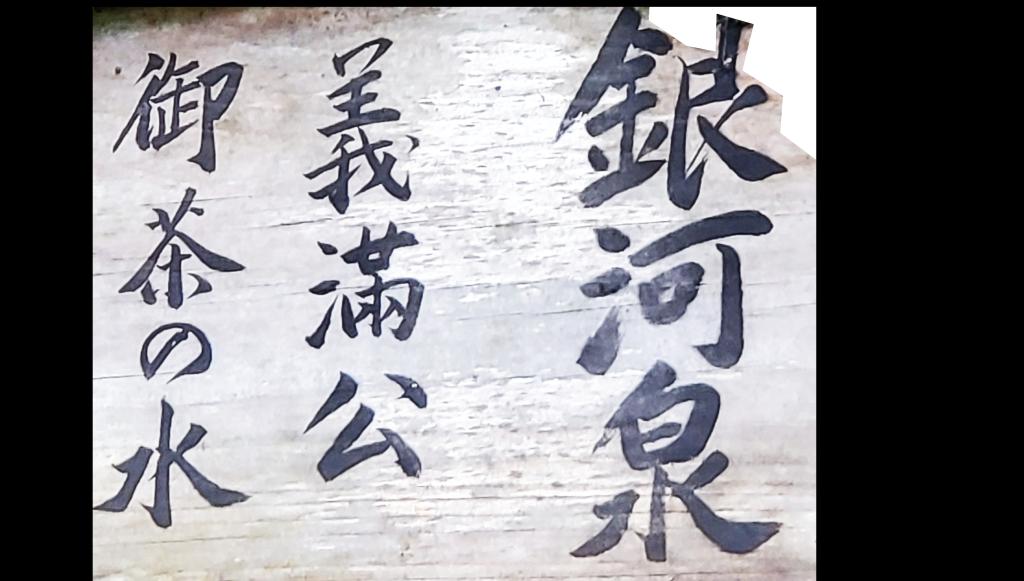 銀河泉
義滿公
御茶の水